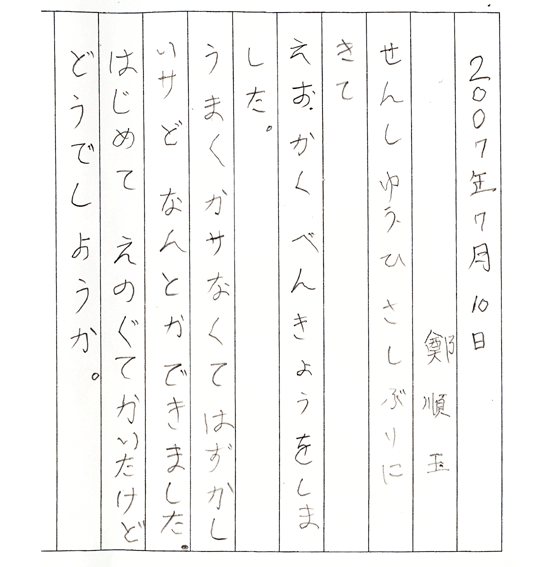 2007年7月10日
鄭順玉
せんしゆう ひさしぶりに
きて
えお かく べんきょうをしま
した。
うまくかけなくてはずかし
いけど なんとかできました。
はじめて えのぐてかいたけど
どうでしようか。